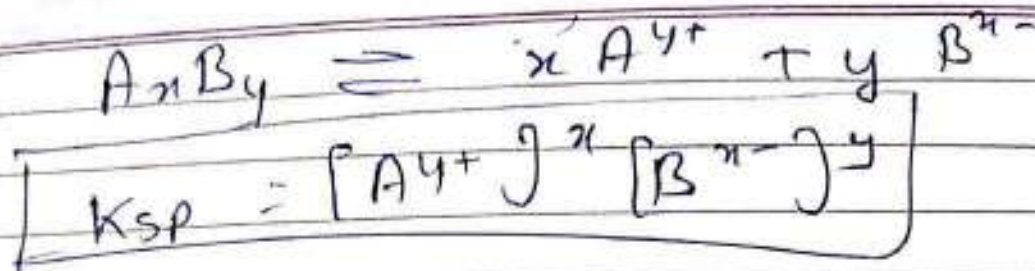 AxBy ⇌ x A^y+ + y B^x-
Ksp = [A^y+]^x [B^x-]^y